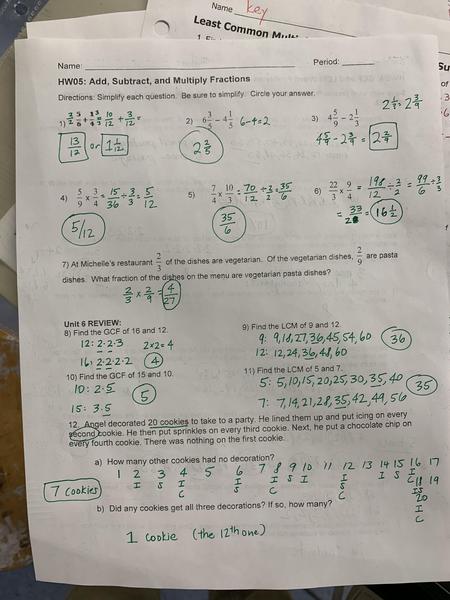 Name key
Least Common Mul
Name: Period:
HW05: Add, Subtract, and Multiply Fractions
Directions: Simplify each question. Be sure to simplify. Circle your answer.
2 1/3 · 2 3/9
1) 10/12 + 3/12 =
13/12 or 1 1/12
2) 6 3/5 - 4 1/5 6-4=2
2 2/5
3) 4 5/9 - 2 1/3
4 5/9 - 2 3/9 = 2 2/9
4) 5/9 x 3/4 = 15/36 ÷ 3/3 = 5/12
5/12
5) 7/4 x 10/3 = 70/12 ÷ 2/2 = 35/6
35/6
6) 22/3 x 9/4 = 198/12 ÷ 2/2 = 99/6 ÷ 3/3
= 33/2 = 16 1/2
7) At Michelle's restaurant 2/3 of the dishes are vegetarian. Of the vegetarian dishes, 2/9 are pasta
dishes. What fraction of the dishes on the menu are vegetarian pasta dishes?
2/3 x 2/9 = 4/27
Unit 6 REVIEW:
8) Find the GCF of 16 and 12.
12: 2·2·3 2x2=4
16: 2·2·2·2 4
9) Find the LCM of 9 and 12.
9: 9,18,27,36,45,54,60 36
12: 12,24,36,48,60
10) Find the GCF of 15 and 10.
10: 2·5
5
15: 3·5
11) Find the LCM of 5 and 7.
5: 5,10,15,20,25,30,35,40
35
7: 7,14,21,28,35,42,49,56
12. Angel decorated 20 cookies to take to a party. He lined them up and put icing on every
second cookie. He then put sprinkles on every third cookie. Next, he put a chocolate chip on
every fourth cookie. There was nothing on the first cookie.
a) How many other cookies had no decoration?
1 2 3 4 5 6 7 8 9 10 11 12 13 14 15 16 17
I S I I I S I I I S I
C S C S C 18 19
7 cookies C I S
20
I
C
b) Did any cookies get all three decorations? If so, how many?
1 cookie (the 12th one)